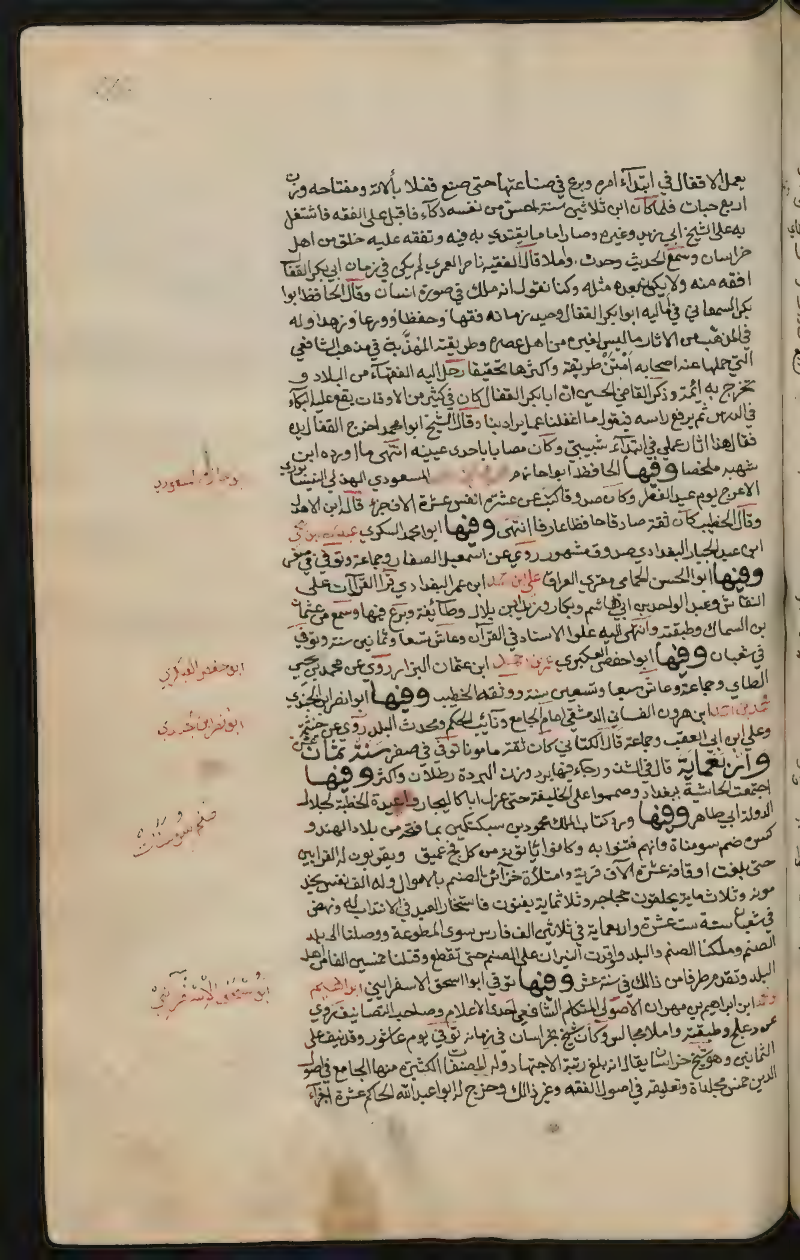 يعمل الاقفال في ابتداء امره وبرع في صناعتها حتى صنع قفلا بآلاته ومفتاحه وزن
اربع حبات فلما كان ابن ثلاثين سنة احس من نفسه ذكاء فاقبل على الفقه فاشتغل
به على الشيخ ابي زيد وغيره وصار اماما يقتدى به فيه وتفقه عليه خلق من اهل
خراسان وسمع الحديث وحدث واملا قال الفقيه ناصر العمري لم يكن في زمان ابي بكر القفال
افقه منه ولا يكون بعده مثله وكنا نقول انه ملك في صورة انسان وقال الحافظ ابوا
بكر السمعاني في أماليه ابوا بكر القفال وحيد زمانه فقها وحفظا وورعا وزهدا وله
في المذهب من الاثار ما ليس لغيره من اهل عصره وطريقته المهذبة في مذهب الشافعي
التي حملها عنه اصحابه امتن طريقة واكثرها تحقيقا رحل اليه الفقهاء من البلاد و
تخرج به ائمة وذكر القاضي الحسين ان ابا بكر القفال كان في كثير من الاوقات يقع عليه البكاء
في الدرس ثم يرفع راسه فيقول ما اغفلنا عما يراد بنا وقال الشيخ ابوا محمد اخرج القفال يده
فقال هذا اثار عملي في ابتداء شبيبتي وكان مصابا باحدى عينيه انتهى ما اورده ابن
شهبه ملخصا وفيها الحافظ ابوا حازم المسعودي الهذلي النيسابوري
الاعرج يوم عيد الفطر وكان صدوقا كتب عن عشرة انفس عشرة الاف جزء قاله ابن الاهدل
وقال الخطيب كان ثقة صادقا حافظا عارفا انتهى وفيها ابوا محمد السكري عبد الله بن يحيى
ابن عبد الجبار البغدادي صدوق مشهور روى عن اسمعيل الصفار وجماعة وتوفي في صفر
وفيها ابوا الحسن الحمامي مقري العراق علي ابن احمد ابن عمر البغدادي قرا القرآات على
النقاش وعبد الواحد بن ابي هاشم وبكار وزيد ابن بلال وطائفة وبرع فيها وسمع من عثمان
بن السماك وطبقته وانتهى اليه علوا الاسناد في القرآن وعاش تسعا وثمانين سنة وتوفي
في شعبان وفيها ابوا حفص العكبري عمر بن احمد ابن عثمان البزار روى عن محمد بن يحيى
الطاي وجماعة وعاش سبعا وتسعين سنة ووثقه الخطيب وفيها ابوا نصر ابن الجندي
محمد بن احمد ابن هرون الغساني الدمشقي امام الجامع ونائب الحكم ومحدث البلد روى عن خيثمة
وعلي ابن ابي العقب وجماعة قال الكتاني كان ثقة مامونا توفي في صفر سنة ثمان عشرة
واربعماية قال في الشذور جاء فيها برد وزن البردة رطلان واكثر وفيها
اجتمعت الحاشية ببغداد وصمموا على الخليفة حتى عزل ابا كاليجار واعيدة الخطبة لجلال
الدولة ابي طاهر وفيها ورد كتاب الملك محمود بن سبكتكين بما فتحه من بلاد الهند و
كسره صنم سومناة وانهم فتنوا به وكانوا يأتونه من كل فج عميق ويقربون له القرابين
حتى بلغت اوقافه عشرة الاف قرية وامتلأة خزائن الصنم بالاموال وله الف نفس يخد
مونه وثلاث ماية يحلقون حجاجه وثلاثماية يغنون فاستخار العبد في الانتداب له ونهض
في شعبان سنة ست عشرة واربعماية في ثلاثين الف فارس سوى المطوعة ووصلنا الى بلد
الصنم وملكنا الصنم والبلد واوقدت النيران على الصنم حتى تقطع وقتلنا خمسين الفا من اهل
البلد وتقدم طرفا من ذالك في سنة عشر وفيها توفي ابوا اسحق الاسفرايني ابراهيم
ابن محمد ابن ابراهيم بن مهران الاصولي المتكلم الشافعي احد الاعلام وصاحب التصانيف روى
عن دعلج وطبقته واملا مجالس وكان شيخ خراسان في زمانه توفي يوم عاشور وقد نيف على
الثمانين وهو شيخ خراسان يقال انه بلغ رتبة الاجتهاد وله المصنفات الكثيرة منها الجامع في اصول
الدين خمس مجلداة وتعليقة في اصول الفقه وغير ذالك وخرج له ابوا عبد الله الحاكم عشرة اجزاء
ابو حازم المسعودي
ابو حفص العكبري
ابو نصر ابن الجندي
صنم سومنات
ابو اسحق الاسفرايني